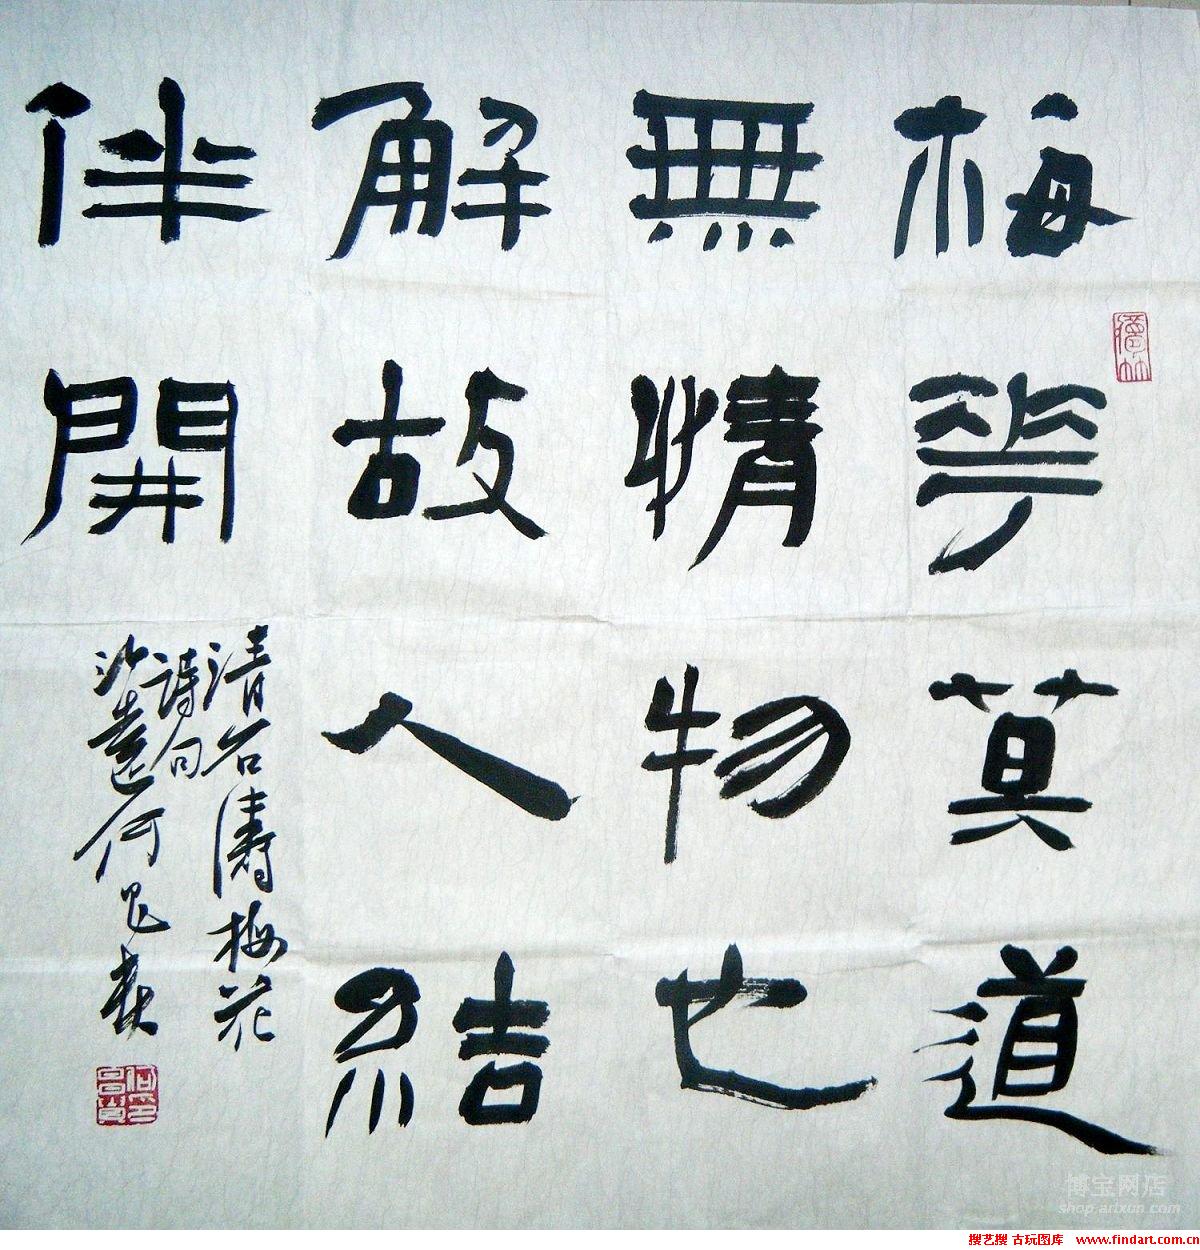 梅花莫道
無情物也
解故人結
伴開
清石濤梅花
詩句
沙遠何昌貴
博宝网店
shop.artxun.com
搜艺搜 古玩图库 www.findart.com.cn